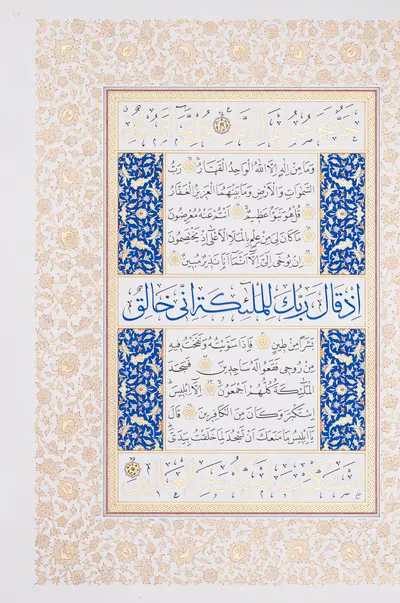 وَمَا مِنْ اِلٰهٍ اِلَّا اللّٰهُ الْوَاحِدُ الْقَهَّارُ رَبُّ
السَّمٰوَاتِ وَالْاَرْضِ وَمَا بَيْنَهُمَا الْعَزِيزُ الْغَفَّارُ
قُلْ هُوَ نَبَؤٌا عَظِيمٌ اَنْتُمْ عَنْهُ مُعْرِضُونَ
مَا كَانَ لِيَ مِنْ عِلْمٍ بِالْمَلَاِ الْاَعْلٰى اِذْ يَخْتَصِمُونَ
اِنْ يُوحٰى اِلَيَّ اِلَّا اَنَّمَا اَنَا نَذِيرٌ مُبِينٌ
اِذْ قَالَ رَبُّكَ لِلْمَلٰئِكَةِ اِنِّى خَالِقٌ
بَشَرًا مِنْ طِينٍ فَاِذَا سَوَّيْتُهُ وَنَفَخْتُ فِيهِ
مِنْ رُوحِى فَقَعُوا لَهُ سَاجِدِينَ فَسَجَدَ
الْمَلٰئِكَةُ كُلُّهُمْ اَجْمَعُونَ اِلَّا اِبْلِيسَ
اِسْتَكْبَرَ وَكَانَ مِنَ الْكَافِرِينَ قَالَ
يَا اِبْلِيسُ مَا مَنَعَكَ اَنْ تَسْجُدَ لِمَا خَلَقْتُ بِيَدَىَّ